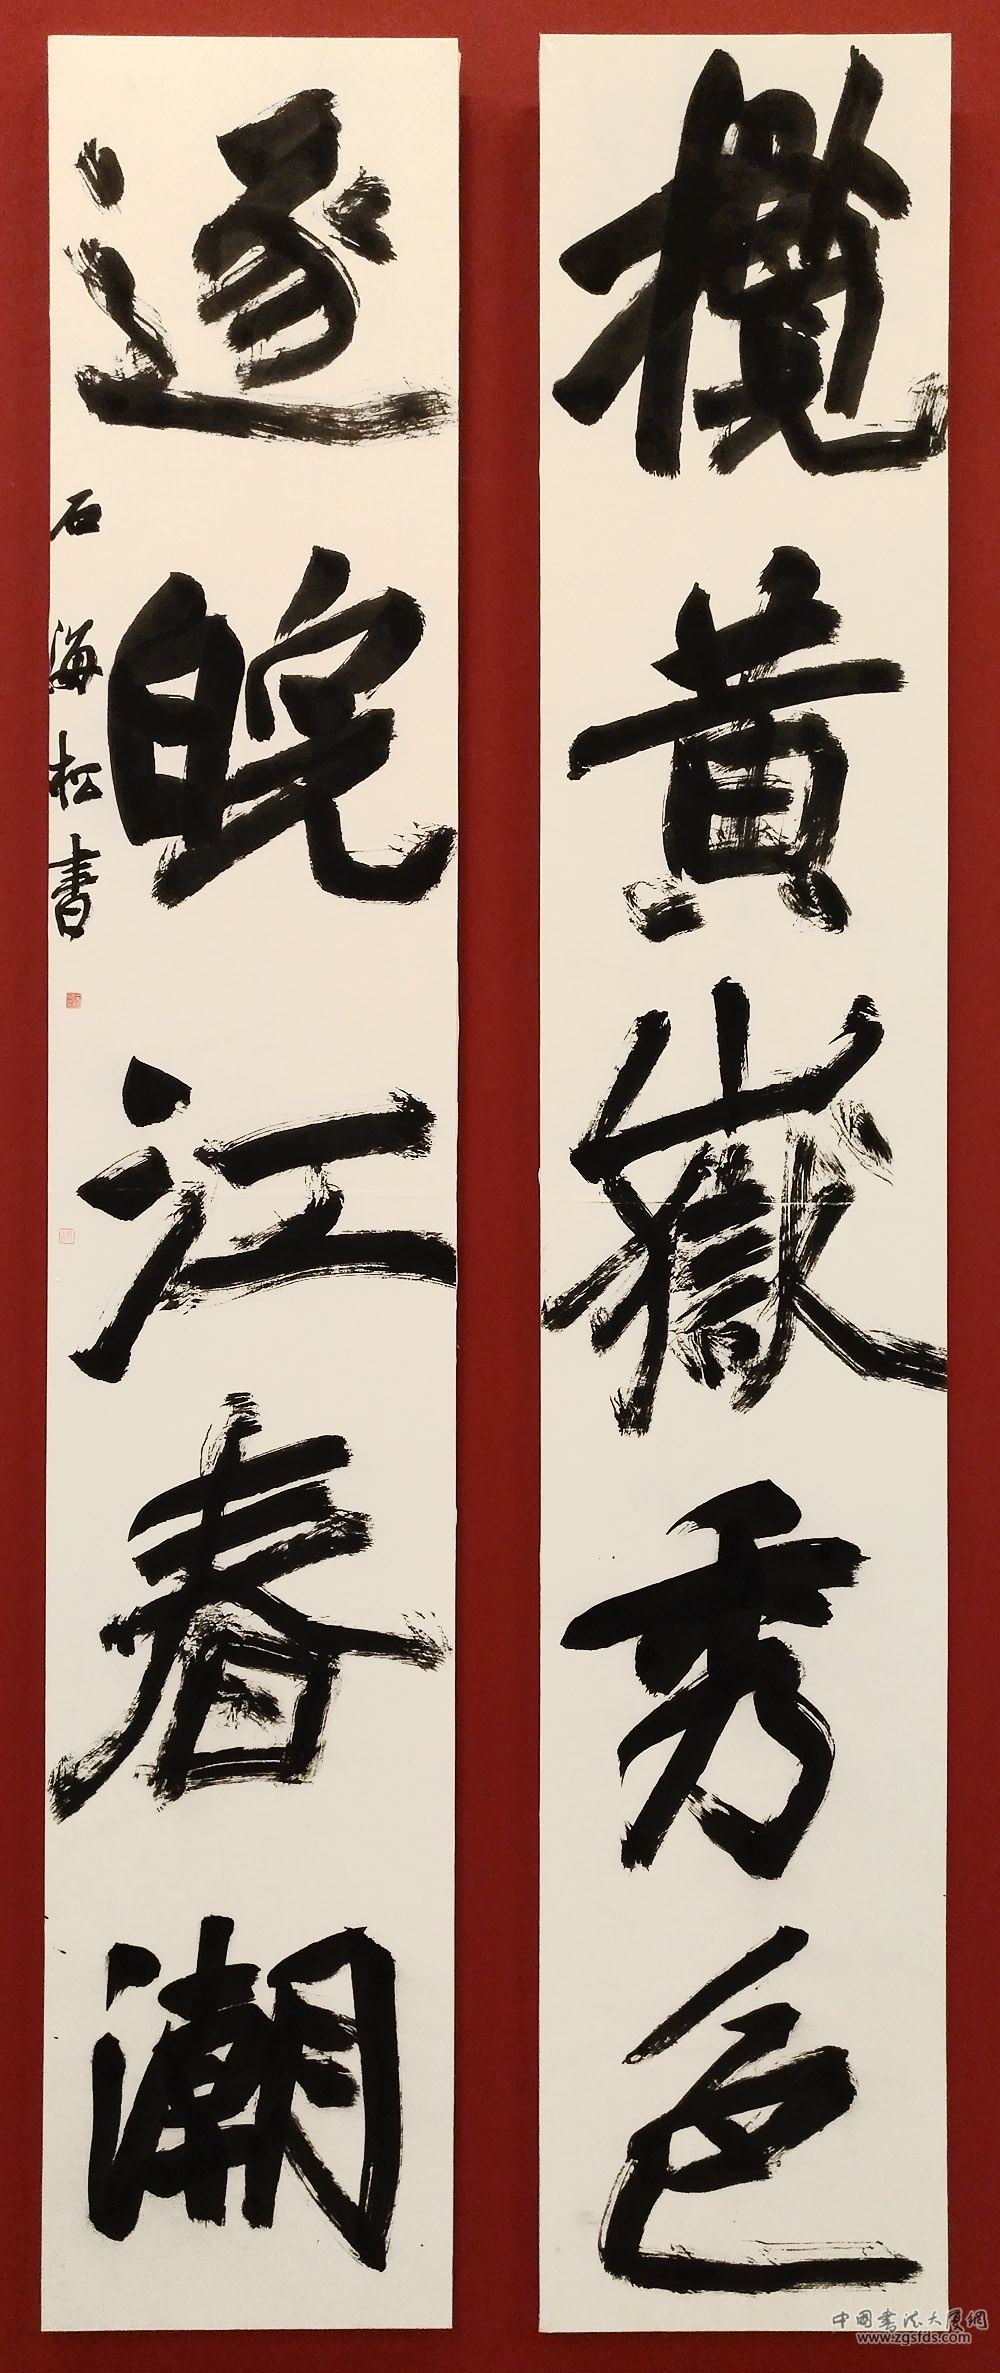 攬黄嶽秀色
逐皖江春潮
石海松書
中國書法大厦網
www.zgsfds.com